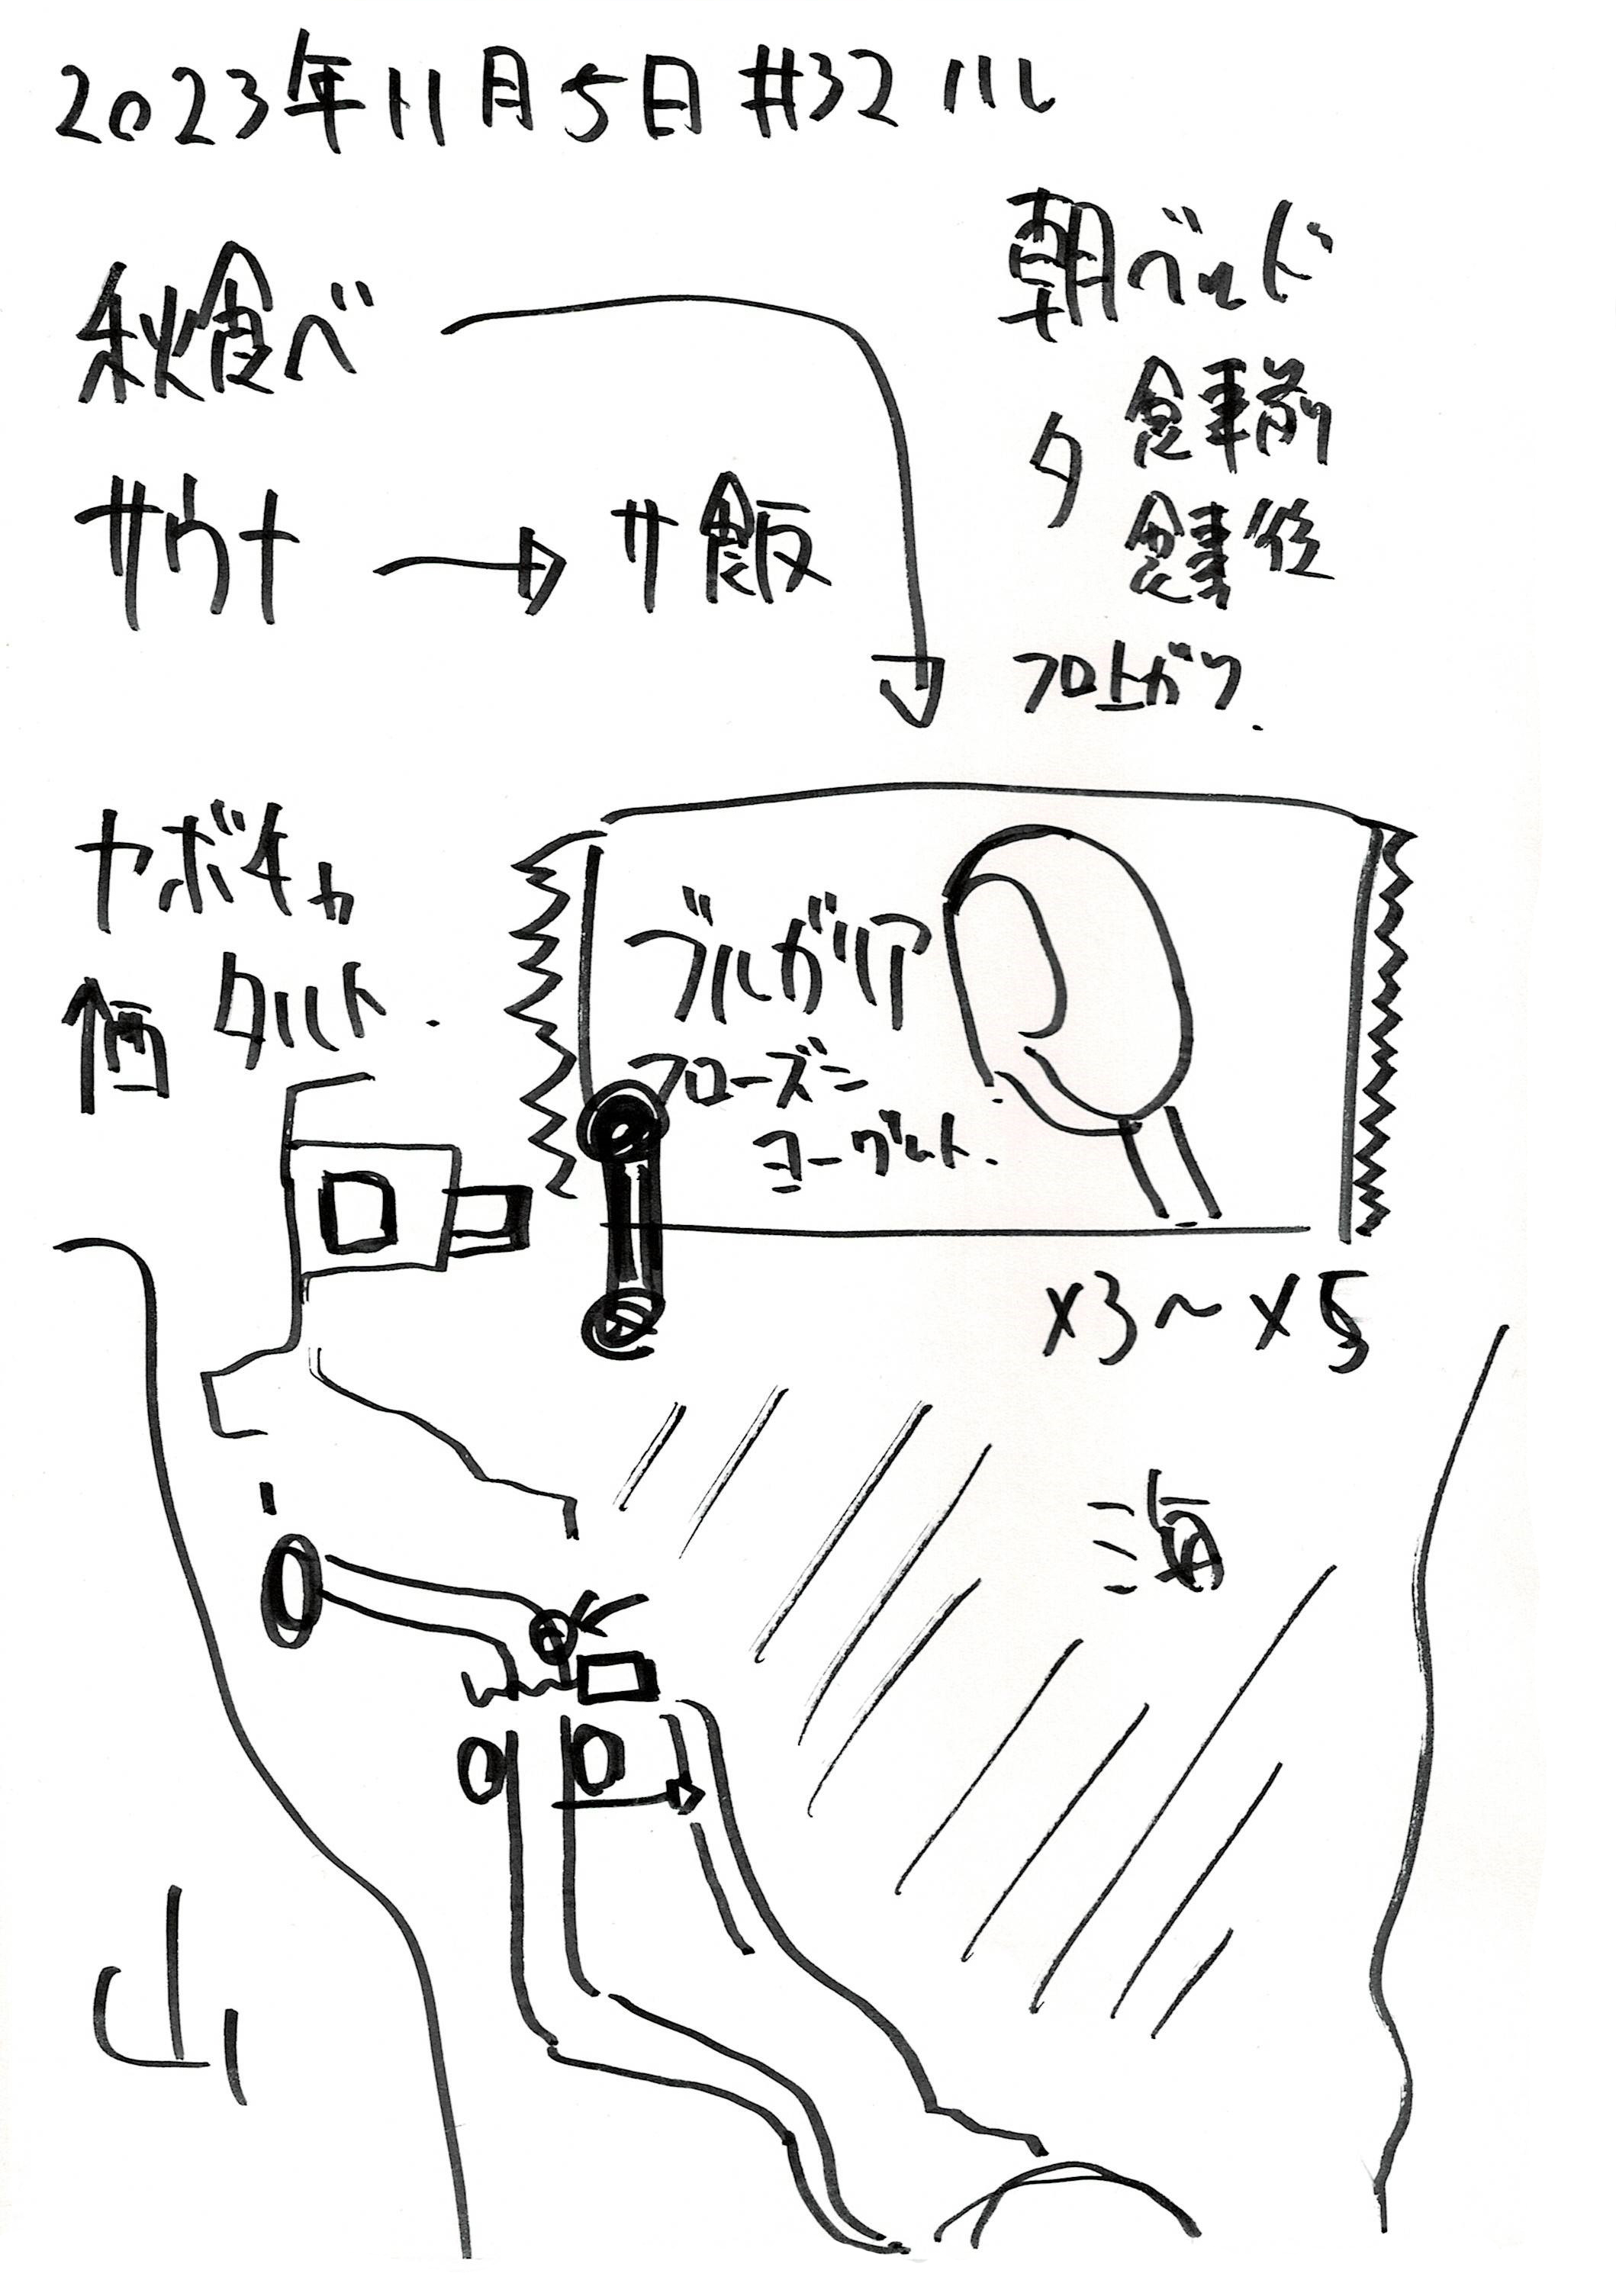 2023年11月5日 #32 ハル
秋食べ
サウナ → サ飯
朝 ベッド
夕 食事前
食事後
フロ上がり.
ヤボキャ
タルト.
ブルガリア
フローズン
ヨーグルト.
×3〜×5
海
山